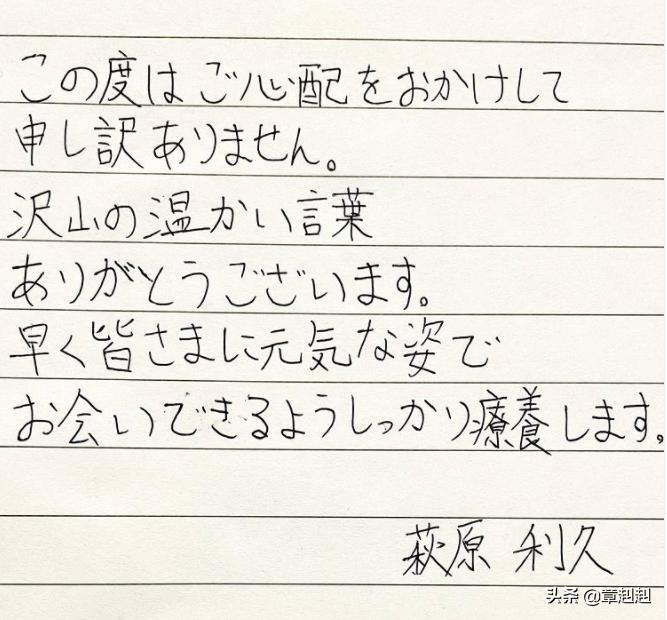 この度はご心配をおかけして
申し訳ありません。
沢山の温かい言葉
ありがとうございます。
早く皆さまに元気な姿で
お会いできるようしっかり療養します。
萩原 利久
头条 @章赳赳